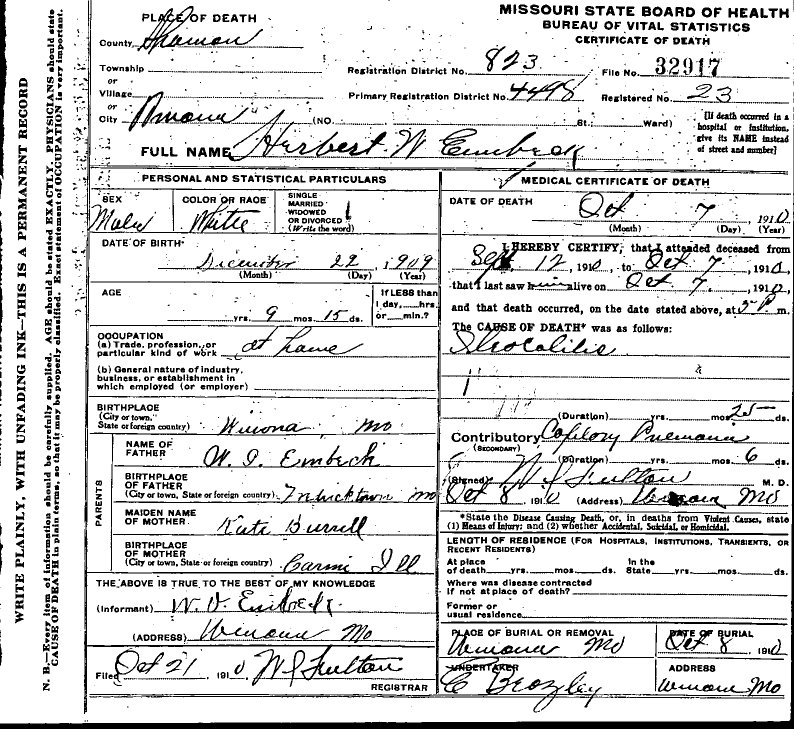 MISSOURI STATE BOARD OF HEALTH
BUREAU OF VITAL STATISTICS
CERTIFICATE OF DEATH
PLACE OF DEATH
County Shannon
Township
or
Village
or
City Winona (NO. St.; Ward)
Registration District No. 823 File No. 32917
Primary Registration District No. 4498 Registered No. 23
[If death occurred in a
hospital or institution,
give its NAME instead
of street and number]
FULL NAME Herbert W Embeck
PERSONAL AND STATISTICAL PARTICULARS
SEX Male
COLOR OR RACE White
SINGLE
MARRIED
WIDOWED
OR DIVORCED
(Write the word)
DATE OF BIRTH
December 22, 1909
(Month) (Day) (Year)
AGE
yrs. 9 mos. 15 ds.
If LESS than
1 day, hrs.
or min.?
OCCUPATION
(a) Trade, profession, or
particular kind of work at home
(b) General nature of industry,
business, or establishment in
which employed (or employer)
BIRTHPLACE
(City or town,
State or foreign country) Winona, Mo
PARENTS
NAME OF
FATHER W. I. Embeck
BIRTHPLACE
OF FATHER
(City or town, State or foreign country) Mo
MAIDEN NAME
OF MOTHER Kate Burrell
BIRTHPLACE
OF MOTHER
(City or town, State or foreign country) Carmi Ill
THE ABOVE IS TRUE TO THE BEST OF MY KNOWLEDGE
(Informant) Embeck
(ADDRESS) Winona Mo
Filed Oct 21 1910 W J Fulton
REGISTRAR
MEDICAL CERTIFICATE OF DEATH
DATE OF DEATH
Oct 7 1910
(Month) (Day) (Year)
I HEREBY CERTIFY, that I attended deceased from
Sept 12, 1910, to Oct 7, 1910,
that I last saw him alive on Oct 7, 1910,
and that death occurred, on the date stated above, at m.
The CAUSE OF DEATH* was as follows:
Ileocolitis
(Duration) yrs. mos. 25 ds.
Contributory
(SECONDARY)
(Duration) yrs. mos. 6 ds.
(Signed) W J Fulton M. D.
Oct 8 1910 (Address) Winona Mo
*State the Disease Causing Death, or, in deaths from Violent Causes, state
(1) Means of Injury; and (2) whether Accidental, Suicidal, or Homicidal.
LENGTH OF RESIDENCE (FOR HOSPITALS, INSTITUTIONS, TRANSIENTS, OR
RECENT RESIDENTS)
At place
of death yrs. mos. ds.
In the
State yrs. mos. ds.
Where was disease contracted
if not at place of death?
Former or
usual residence
PLACE OF BURIAL OR REMOVAL
Winona Mo
DATE OF BURIAL
Oct 8 1910
UNDERTAKER
ADDRESS
Winona Mo
WRITE PLAINLY, WITH UNFADING INK—THIS IS A PERMANENT RECORD
N. B.—Every item of information should be carefully supplied. AGE should be stated EXACTLY. PHYSICIANS should state
CAUSE OF DEATH in plain terms, so that it may be properly classified. Exact statement of OCCUPATION is very important.